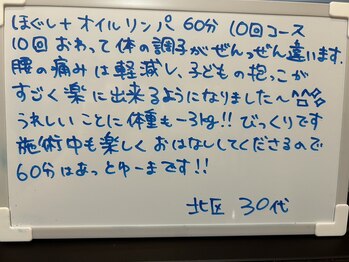 ほぐし+オイルリンパ 60分 10回コース
10回おわって体の調子がぜんっぜん違います.
腰の痛みは軽減し、子どもの抱っこが
すごく楽に出来るようになりました〜
うれしいことに体重も-3kg!! びっくりです
施術中も楽しくおはなししてくださるので
60分はあっとゆーまです!!
北区 30代